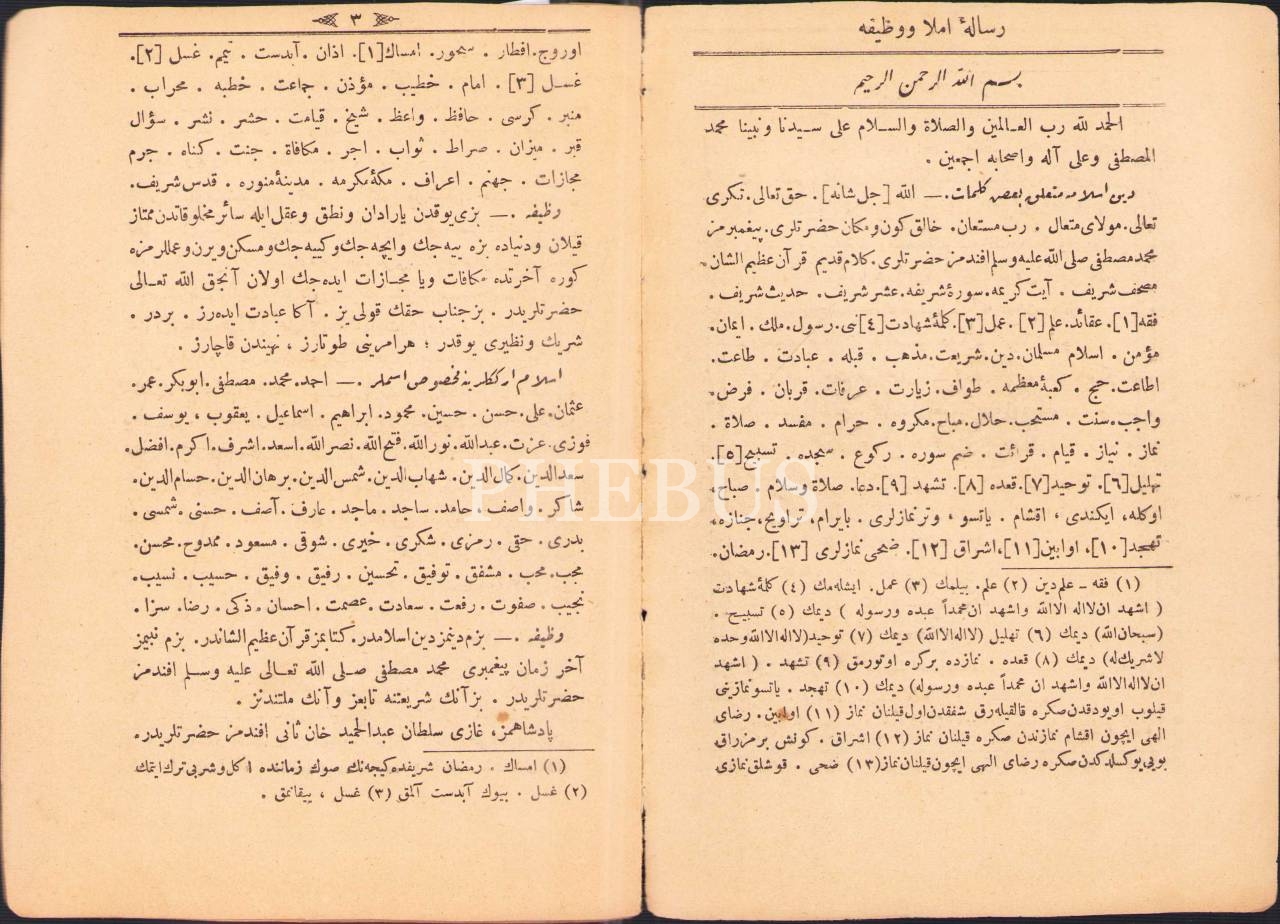 رسالهٔ املا ووظیفه
بسم الله الرحمن الرحیم
الحمد لله رب العـالمین والصلاة والسـلام علی سـیدنا ونبینا محمد
المصطفی وعلی آله واصحابه اجمعین .
دین اسلامه متعلق بعض کلمات. — الله [جل شانه] . حق تعالی. تکری
تعالی. مولای متعال . رب مستعان. خالق کون ومکان حضرتلری. پیغمبرمز
محمد مصطفی صلی الله علیه وسلم افندمز حضرتلری. کلام قدیم قرآن عظیم الشان.
مصحف شریف . آیت کریمه. سورهٔ شریفه. عشر شریف. حدیث شریف .
فقه[١]. عقائد. علم[٢] .عمل[٣]. کلمهٔ شهادت[٤] نبی. رسول. ملك . ایمان.
مؤمن . اسلام مسلمان. دین. شریعت. مذهب . قبله . عبادت . طاعت.
اطاعت. حج . کعبهٔ معظمه . طواف. زیارت . عرفات. قربان . فرض.
واجب. سنت . مستحب. حلال. مباح. مکروه . حرام . مفسد . صلاة .
نماز . نیاز . قیام . قرائت . ضم سوره . رکوع . سجده . تسبیح[٥].
تهلیل[٦]. توحید[٧]. قعده [٨]. تشهد [٩]. دعا. صلاة وسلام . صباح،
اوکله، ایکندی ، اقشام . یاتسو ، وتر نمازلری . بایرام، تراویح، جنازه،
تهجد[١٠]، اوابین[١١]، اشراق [١٢]. ضحی نمازلری [١٣]. رمضان.
(١) فقه ـ علم دین (٢) علم. بیلمك (٣) عمل. ایشله مك (٤) کلمهٔ شهادت
( اشهد ان لااله الاالله واشهد ان محمداً عبده ورسوله ) دیمك (٥) تسبیح .
(سبحان الله) دیمك (٦) تهلیل (لااله الاالله) دیمك (٧) توحید (لااله الاالله وحده
لاشریك له) دیمك (٨) قعده . نمازده برکره اوتورمق (٩) تشهد . ( اشهد
ان لااله الاالله واشهد ان محمداً عبده ورسوله) دیمك (١٠) تهجد . یاتسو نمازینی
قیلوب اویودقدن صکره قالقیله رق شفقدن اول قیلنان نماز (١١) اوابین . رضای
الهی ایچون اقشام نمازندن صکره قیلنان نماز (١٢) اشراق . کونش بر مزراق
بویی یوکسلدکدن صکره رضای الهی ایچون قیلنان نماز (١٣) ضحی . قوشلق نمازی
٣
اوروج. افطار . سحور. امساك[١]. اذان . آبدست . تیمم. غسل [٢].
غسـل [٣] . امام . خطیب . مؤذن . جماعت . خطبه . محراب .
منبر . کرسی . حافظ . واعظ . شیخ . قیامت . حشر . نشر . سؤال
قبر . میزان . صراط . ثواب . اجر . مکافاة . جنت . کناه . جرم
مجازات . جهنم . اعراف . مکهٔ مکرمه . مدینهٔ منوره . قدس شریف.
وظیفه . — بزی یوقدن یارادان ونطق وعقل ایله سائر مخلوقاتدن ممتاز
قیلان ودنیاده بزه ییه جك وایچه جك وکییه جك ومسکن ویرن وعمللرمزه
کوره آخرتده مکافات ویا مجـازات ایده جك اولان آنجق الله تعـالی
حضرتلریدر . بز جناب حقك قولی یز . آکا عبادت ایده رز . بردر .
شریك ونظیری یوقدر ؛ هر امرینی طوتارز ، نهیندن قاچارز .
اسلام ارککلرینه مخصوص اسملر . — احمد. محمد. مصطفی. ابوبکر. عمر.
عثمان. علی. حسن . حسین. محمود. ابراهیم . اسماعیل . یعقوب ، یوسف .
فوزی. عزت. عبدالله. نورالله. فتح الله. نصرالله. اسعد. اشرف. اکرم. افضل.
سعدالدین. کمال الدین. شهاب الدین. شمس الدین. برهان الدین. حسام الدین.
شاکر . واصف ، حامد. ساجد . ماجد . عارف. آصف . حسنی. شمسی .
بدری . حقی . رمزی . شکری . خیری . شوقی . مسعود . ممدوح. محسن.
مجب. محب . مشفق . توفیق . تحسین . رفیق . وفیق . حسیب . نسیب.
نجیب . صفوت . رفعت . سعادت. عصمت . احسان. ذکی . رضا. سزا .
وظیفه . — بزم دینمز دین اسلامدر. کتابمز قرآن عظیم الشاندر. بزم نبیمز
آخر زمان پیغمبری محمد مصطفی صـلی الله تعـالی علیه وسـلم افندمز
حضرتلریدر . بز آنك شریعتنه تابعز وآنك ملتندنز .
پادشاهمز، غازی سلطان عبدالحمید خان ثانی افندمز حضرتلریدر.
(١) امساك . رمضان شریفده کیجه نك صوك زماننده اکل وشربی ترك ایتمك
(٢) غسل . بیوك آبدست آلمق (٣) غسل ، ییقانمق .
PHEBUS